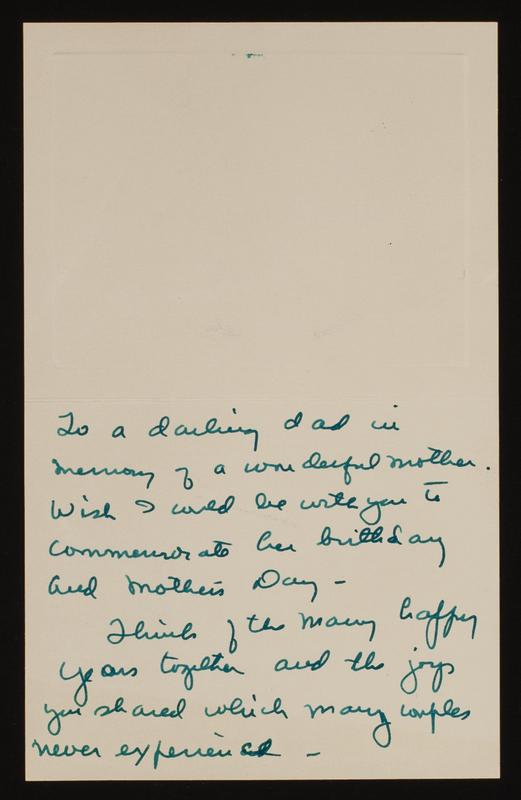 To a darling dad in
memory of a wonderful mother.
Wish I could be with you to
commemorate her birthday
and Mothers Day -
Think of the many happy
years together and the joys
you shared which many couples
never experienced -